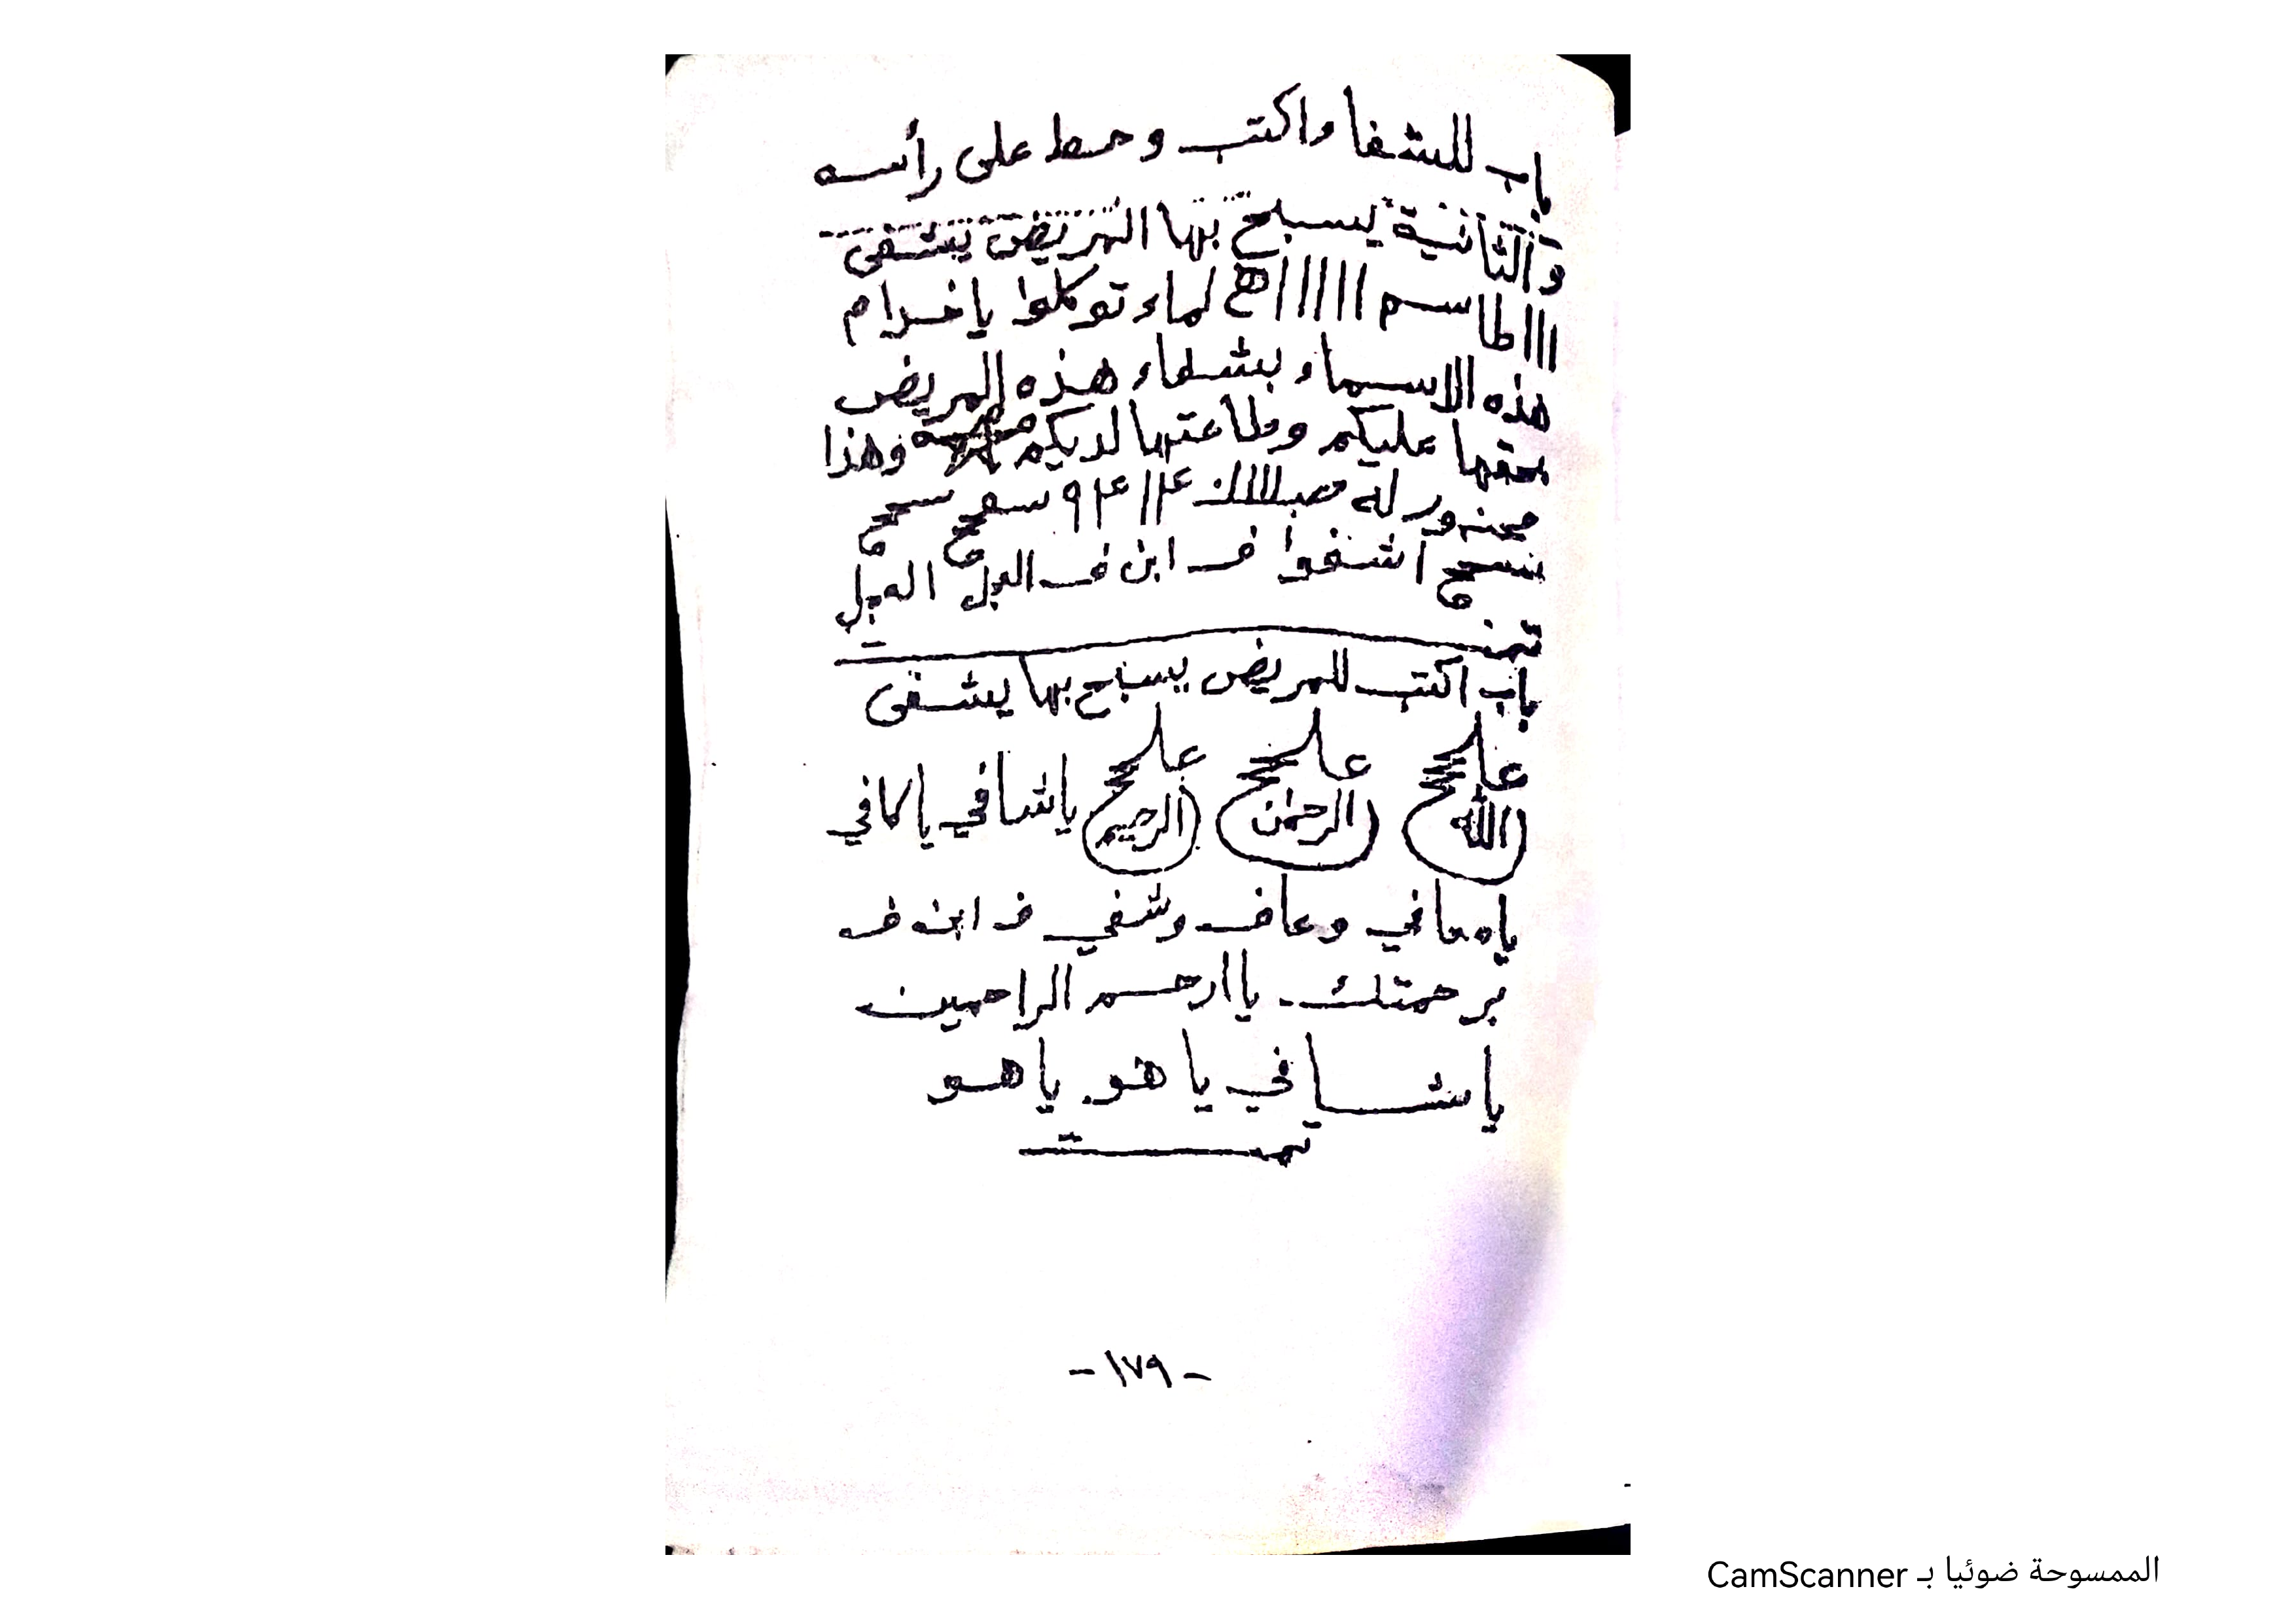 باب للشفا واكتب وحط على رأسه
والثانية يسبح بها المريض يشفى
ااا طاسم اااااا هح لماء توكلوا ياخدام
هذه الاسماء بشفاء هذه المريض
بحقها عليكم وطاعتها لديكم وهذا
له ٩ سعحح سححح
اشفوا ف ابن ف العجل العجل
تمت
باب اكتب للمريض يسبح بها يشفى
علححح علححح علححح
الله الرحمن الرحيم ياشافي ياكافي
يامعافي وعاف وشفي ف ابن ف
برحمتك ياارحم الراحمين
ياشافي يا هو يا هو
تمت
-١٧٩-
الممسوحة ضوئيا بـ CamScanner